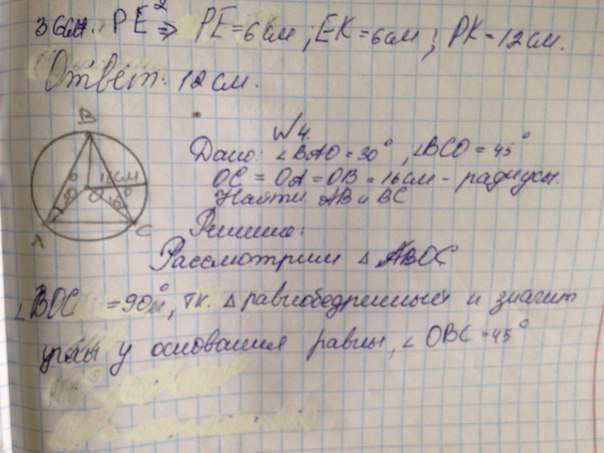 36см. PE² ⇒ PE=6см; EK=6см; PK=12см.
Ответ: 12см.
№4.
Дано: ∠BAO=30°, ∠BCO=45°
OC=OA=OB=16см - радиусы.
Найти AB и BC
Решение:
Рассмотрим △ BOC
∠BOC =90°, т.к. △ равнобедренный и значит
углы у основания равны, ∠OBC=45°
B
16см
O
30°
45°
A
C